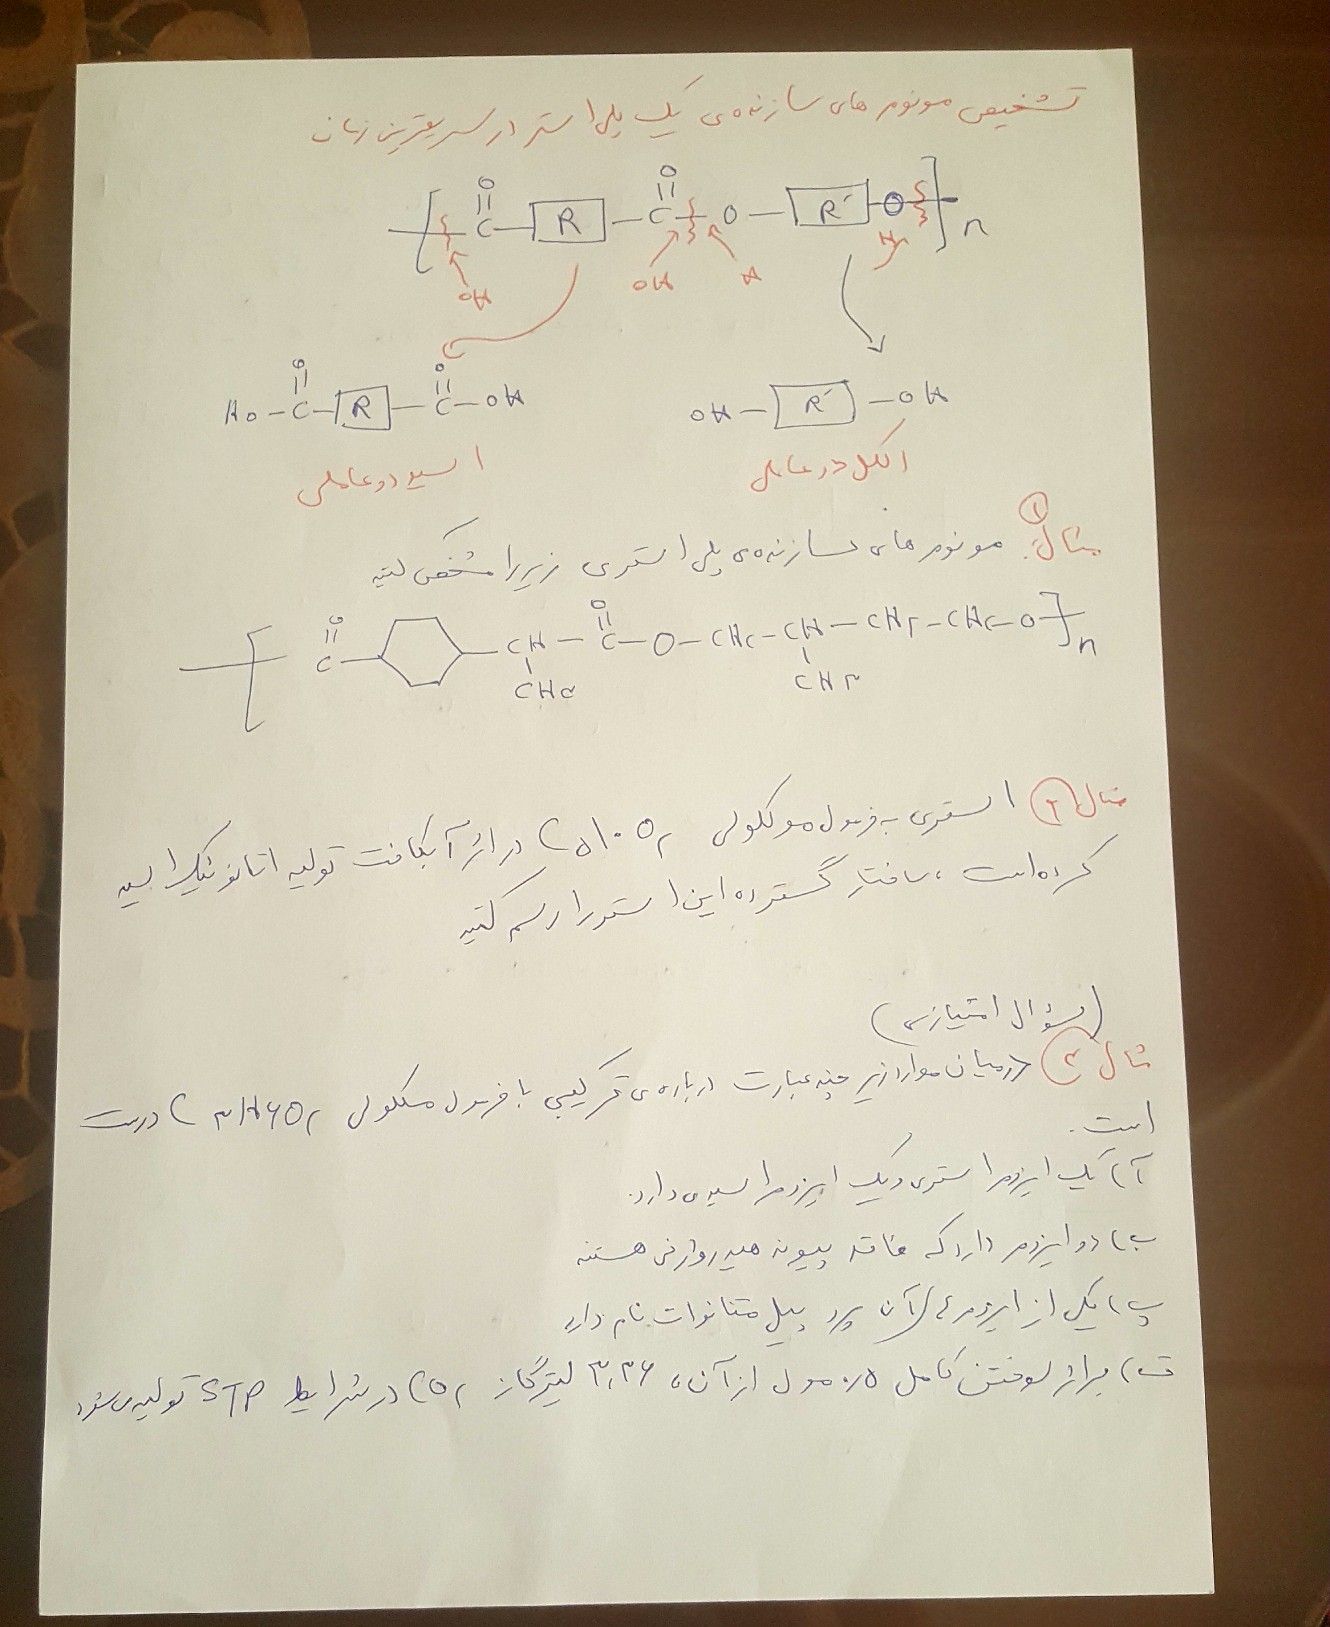 تشخیص مونومر های سازنده‌ی یک پلی استر در سریعترین زمان
[ C(=O) - R - C(=O) - O - R′ - O ]n
OH OH H H
HO - C(=O) - R - C(=O) - OH
OH - R′ - OH
اسید دو عاملی
الکل دو عاملی
مثال ۱: مونومر های سازنده‌ی پلی استری زیر را مشخص کنید
O O
[ C - CH - C - O - CH۲ - CH - CH۲ - CH۲ - O ]n
CH۳ CH۳
مثال ۲ استری به فرمول مولکولی C۵H۱۰O۲ در اثر آبکافت تولید اتانوئیک اسید
کرده است، ساختار گسترده این استر را رسم کنید
(سؤال امتیازی)
مثال ۳ درمیان موارد زیر چند عبارت درباره‌ی ترکیبی با فرمول مولکولی C۳H۶O۲ درست
است.
آ) یک ایزومر استری و یک ایزومر اسیدی دارد.
ب) دو ایزومر دارد که فاقد پیوند هیدروژنی هستند
پ) یکی از ایزومر های آن پروپیل متانوات نام دارد
ت) برای سوختن کامل ۰٫۵ مول از آن، ۳٫۳۶ لیتر گاز CO۲ در شرایط STP تولید می شود